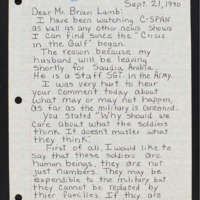 Sept. 21, 1990
Dear Mr. Brian Lamb:
I have been watching C-SPAN
as well as any other news shows
I can find since the "Crisis
in the Gulf" began.
The reason because my
husband will be leaving
Shortly for Saudia Arabia.
He is a Staff SGT. in the Army.
I was very hurt to hear
your comment today about
what may or may not happen,
as far as the military is concerned.
You Stated "Why Should we
care about what the Soldiers
think. It doesn't matter what
they think.
First of all, I would like to
say that these Soldiers are
human beings, they are not
just numbers. They may be
expendible to the military but
they cannot be replaced by
thier families. If they are